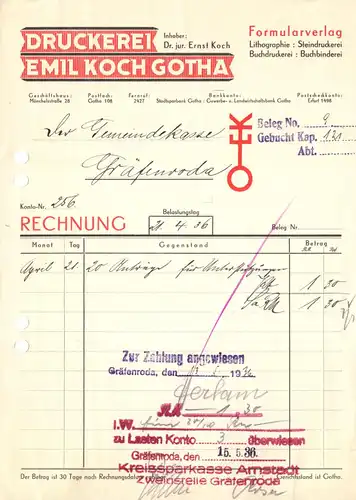 DRUCKEREI
EMIL KOCH GOTHA
Inhaber:
Dr. jur. Ernst Koch
Formularverlag
Lithographie : Steindruckerei
Buchdruckerei : Buchbinderei
Geschäftshaus: Postfach: Fernruf: Bankkonto: Postscheckkonto:
Münchelstraße 28 Gotha 108 2427 Städtsparbank Gotha : Gewerbe- u. Landwirtschaftsbank Gotha Erfurt 1998
Der Gemeindekasse
Gräfenroda
Beleg No. 9
Gebucht Kap. 131
Abt.
Konto-Nr. 256
RECHNUNG
Belastungstag
21. 4. 36
Beleg Nr.
Monat Tag Gegenstand Betrag
April 21. 20 Anträge für 1 30
1 30
Zur Zahlung angewiesen
Gräfenroda, den 193
RM 1.30
I.W.
zu Lasten Konto 3 überwiesen
Gräfenroda, den 15. 5. 36.
Kreissparkasse Arnstadt
Zweigstelle Gräfenroda
Der Betrag ist 30 Tage nach Rechnungsdatum
Gerichtsstand ist Gotha.